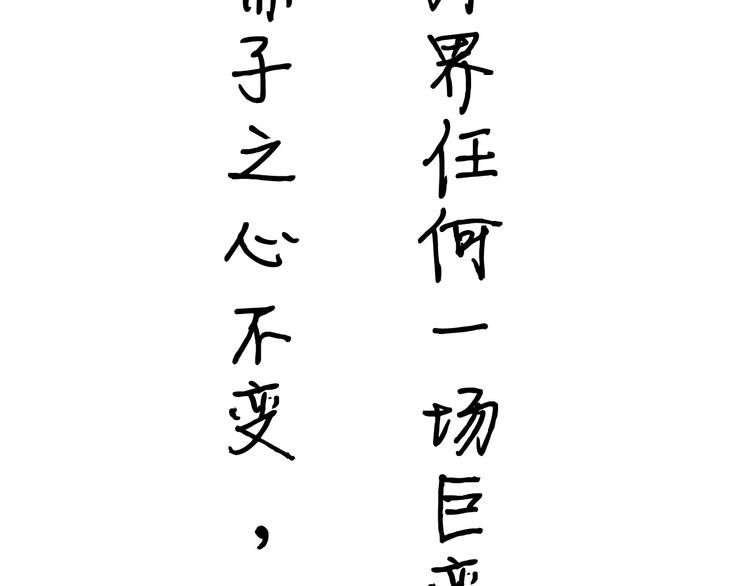 界任何一场巨变
子之心不变，